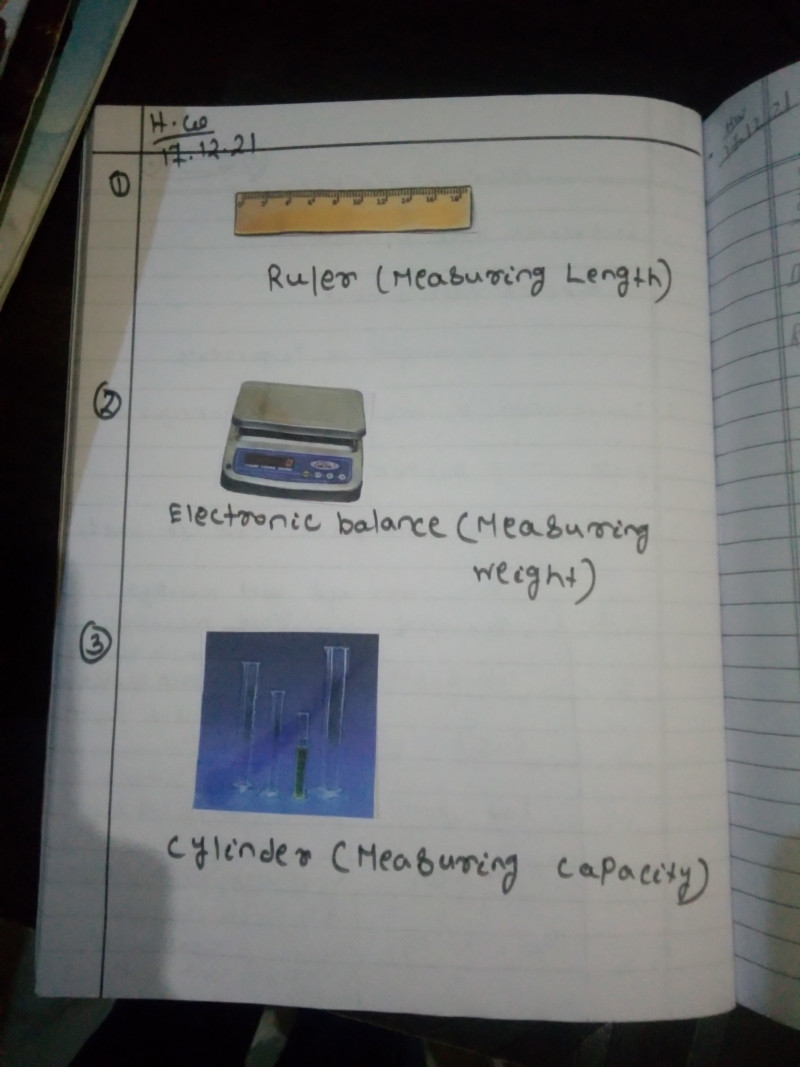 H.W
17.12.21
①
Ruler (Measuring Length)
②
Electronic balance (Measuring
weight)
③
Cylinder (Measuring capacity)